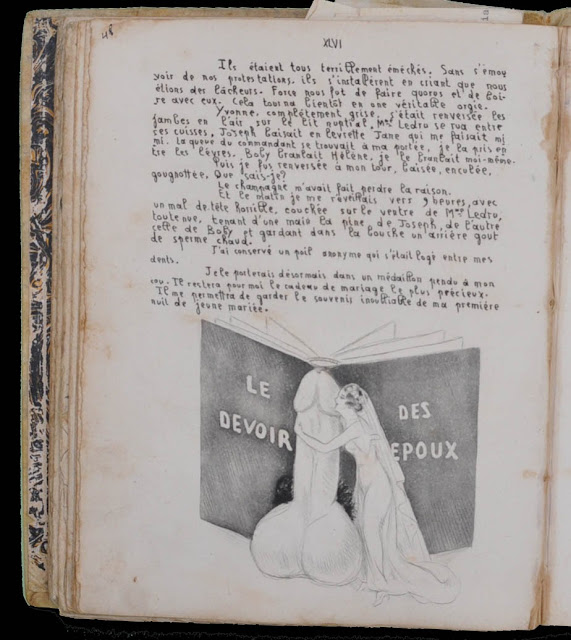 48
XLVI
Ils étaient tous terriblement éméchés. Sans s'émou
voir de nos protestations, ils s'installèrent en criant que nous
étions des lâcheurs. Force nous fut de faire quorus et de boi-
re avec eux. Cela tourna bientôt en une véritable orgie.
Yvonne, complètement grise, s'était renversée les
jambes en l'air sur le lit nuptial, Mme Ledru se rua entre
ses cuisses, Joseph baisait en levrette Jane qui me faisait mi
mi. La queue du commandant se trouvait à ma portée, je la pris en
tre les lèvres. Boby branlait Hélène, je le branlait moi-même.
Puis je fus renversée à mon tour, baisée, enculée,
gougnottée, Que sais-je?
Le champagne m'avait fait perdre la raison.
Et le matin je me réveillais vers 9 heures, avec
un mal de tête horrible, couchée sur le ventre de Mme Ledru,
toute nue, tenant d'une main la pine de Joseph, de l'autre
celle de Boby et gardant dans la bouche un arrière gout
de sperme chaud.
J'ai conservé un poil anonyme qui s'était logé entre mes
dents.
Je le porterais désormais dans un médaillon pendu à mon
cou. Il restera pour moi le cadeau de mariage le plus précieux.
Il me permettra de garder le souvenir inoubliable de ma première
nuit de jeune mariée.
LE DEVOIR
DES EPOUX